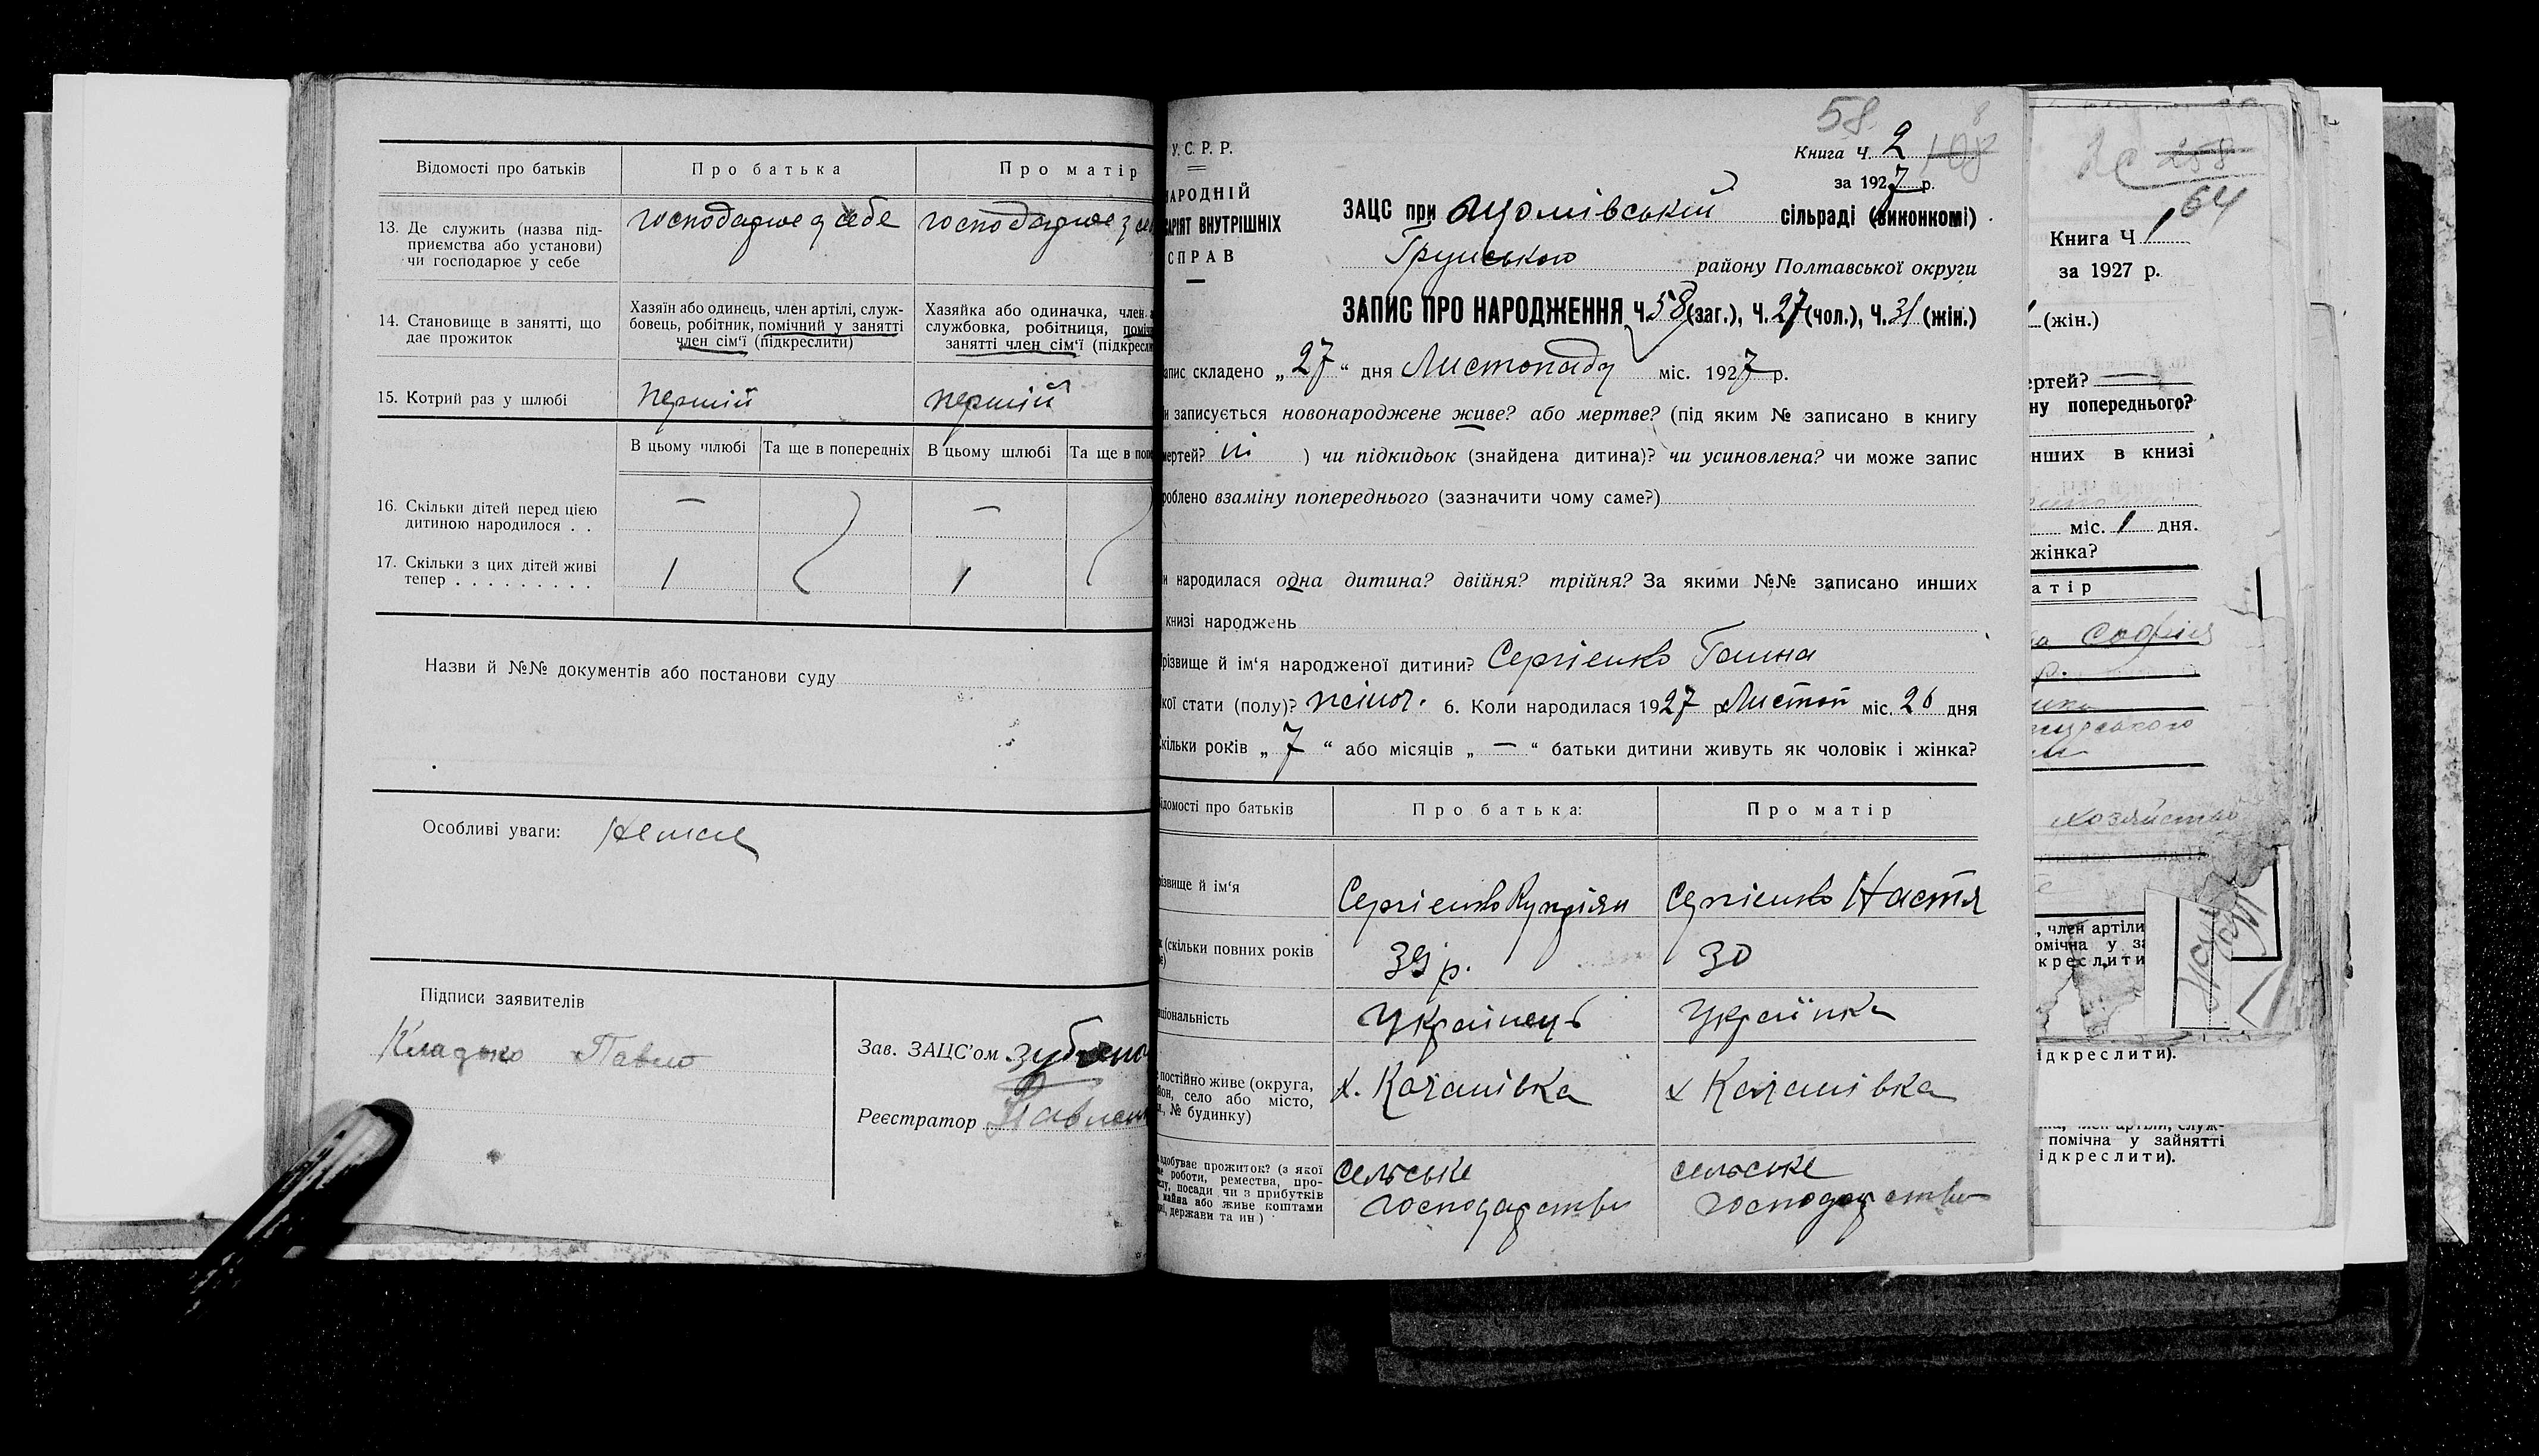 Відомості про батьків
Про батька
Про матір
13. Де служить (назва під-
приємства або установи)
чи господарює у себе
господарює у себе
господарює у
14. Становище в занятті, що
дає прожиток
Хазяїн або одинець, член артілі, служ-
бовець, робітник, помічний у занятті
член сім'ї (підкреслити)
Хазяйка або одиначка, член
службовка, робітниця,
занятті член сім'ї
15. Котрий раз у шлюбі
перший
перший
В цьому шлюбі
Та ще в попередніх
В цьому шлюбі
Та ще в
16. Скільки дітей перед цією
дитиною народилося . .
—
—
17. Скільки з цих дітей живі
тепер . . . . . . . . .
1
1
Назви й №№ документів або постанови суду
Особливі уваги: Немає
Підписи заявителів
Павло
Зав. ЗАЦС'ом
Реєстратор
58
У. С. Р. Р.
Книга Ч. 2
за 1927 р.
АРОДНІЙ
АРІЯТ ВНУТРІШНІХ
СПРАВ
ЗАЦС при сільраді (виконкомі)
Грунського району Полтавської округи
ЗАПИС ПРО НАРОДЖЕННЯ Ч. 58 (заг.), Ч. 27 (чол.), Ч. 31 (жін.)
апис складено „ 27 “ дня Листопаду міс. 1927 р.
и записується новонароджене живе? або мертве? (під яким № записано в книгу
мертей? ні ) чи підкидьок (знайдена дитина)? чи усиновлена? чи може запис
роблено взаміну попереднього (зазначити чому саме?)
и народилася одна дитина? двійня? трійня? За якими №№ записано инших
книзі народжень
різвище й ім'я народженої дитини? Сергієнко Ганна
кої стати (полу)? жіноч. 6. Коли народилася 1927 р. Листоп міс. 26 дня
кільки років „ 7 “ або місяців „ — “ батьки дитини живуть як чоловік і жінка?
ідомості про батьків
Про батька:
Про матір
різвище й ім'я
Сергієнко Купріян
Сергієнко Настя
(скільки повних років
39 р.
30
ціональність
Українець
Українка
постійно живе (округа,
йон, село або місто,
№ будинку)
х. Качанівка
х Качанівка
здобуває прожиток? (з якої
роботи, ремества, про-
посади чи з прибутків
майна або живе коштами
держави та ин)
сельське
господарство
сельське
господарство
258
64
Книга Ч. 1
за 1927 р.
(жін.)
ертей?
ну попереднього?
нших в книзі
міс. 1 дня.
жінка?
атір
Софія
р.
хозяйство
, член артили
омічна у за
креслити
ідкреслити).
помічна у зайнятті
ідкреслити).